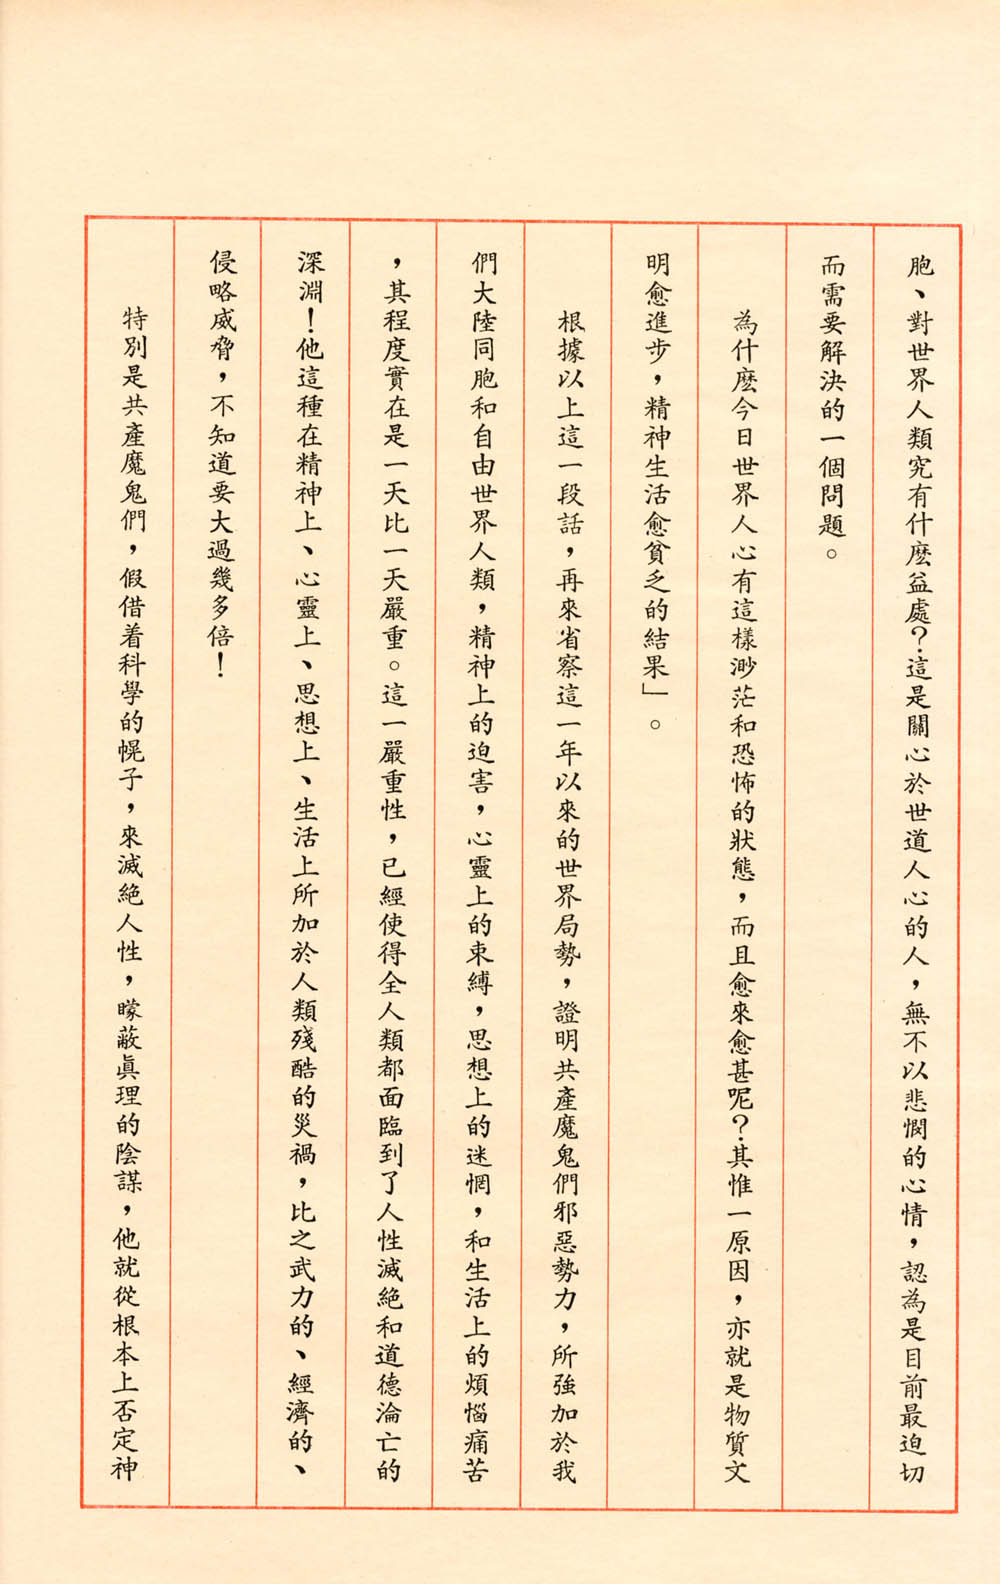 胞、對世界人類究有什麽益處？這是關心於世道人心的人，無不以悲憫的心情，認為是目前最迫切
而需要解決的一個問題。
為什麽今日世界人心有這樣渺茫和恐怖的狀態，而且愈來愈甚呢？其惟一原因，亦就是物質文
明愈進步，精神生活愈貧乏的結果」。
根據以上這一段話，再來省察這一年以來的世界局勢，證明共產魔鬼們邪惡勢力，所強加於我
們大陸同胞和自由世界人類，精神上的迫害，心靈上的束縛，思想上的迷惘，和生活上的煩惱痛苦
，其程度實在是一天比一天嚴重。這一嚴重性，已經使得全人類都面臨到了人性滅絕和道德淪亡的
深淵！他這種在精神上、心靈上、思想上、生活上所加於人類殘酷的災禍，比之武力的、經濟的、
侵略威脅，不知道要大過幾多倍！
特別是共產魔鬼們，假借着科學的幌子，來滅絕人性，矇蔽眞理的陰謀，他就從根本上否定神